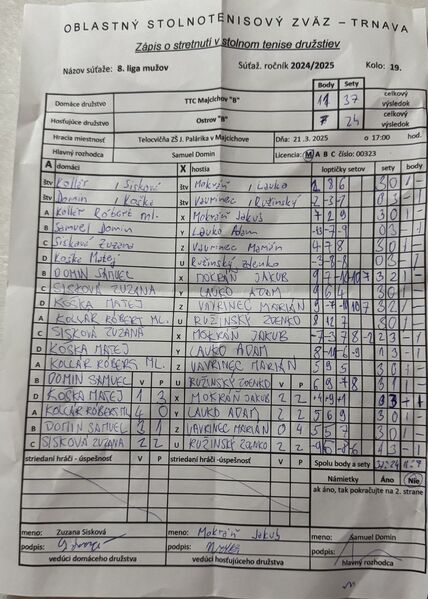 OBLASTNÝ STOLNOTENISOVÝ ZVÄZ – TRNAVA
Zápis o stretnutí v stolnom tenise družstiev
Názov súťaže: 8. liga mužov Súťaž. ročník 2024/2025 Kolo: 19.
Body Sety
Domáce družstvo TTC Majcichov "B" 11 37 celkový výsledok
Hosťujúce družstvo Ostrov "B" 7 24 celkový výsledok
Hracia miestnosť Telocvičňa ZŠ J. Palárika v Majcichove Dňa: 21.3.2025 o 17:00 hod.
Hlavný rozhodca Samuel Domin Licencia: M A B C číslo: 00323
A domáci X hostia loptičky setov sety body
štv Kollár, Sisková štv Mokráň, Lauko 3 0 1 -
štv Domin, Koška štv Vavrinec, Ružinský 0 3 - 1
A Kollár Róbert ml. X Mokráň Jakub 7 2 9 3 0 1 -
B Samuel Domin Y Lauko Adam 0 3 - 1
C Sisková Zuzana Z Vavrinec Marián 4 7 8 3 0 1 -
D Koška Matej U Ružinský Zdenko -3 -8 -8 0 3 - 1
B DOMIN SAMUEL X MOKRÁŇ JAKUB 3 2 1 -
C SISKOVÁ ZUZANA Y LAUKO ADAM 9 6 4 3 0 1 -
D KOŠKA MATEJ Z VAVRINEC MARIÁN 3 2 1 -
A KOLLÁR RÓBERT ML. U RUŽINSKÝ ZDENKO 8 12 7 3 0 1 -
C SISKOVÁ ZUZANA X MOKRÁŇ JAKUB 2 3 - 1
D KOŠKA MATEJ Y LAUKO ADAM 1 3 - 1
A KOLLÁR RÓBERT ML. Z VAVRINEC MARIÁN 5 9 5 3 0 1 -
B DOMIN SAMUEL V P U RUŽINSKÝ ZDENKO V P 3 1 1 -
D KOŠKA MATEJ 1 3 X MOKRÁŇ JAKUB 2 2
A KOLLÁR RÓBERT ML 4 0 Y LAUKO ADAM 2 2 5 6 9 3 0 1 -
B DOMIN SAMUEL 3 1 Z VAVRINEC MARIÁN 0 4 5 5 7 3 0 1 -
C SISKOVÁ ZUZANA 2 2 U RUŽINSKÝ ZDENKO 2 2 1 3 - 1
striedaní hráči - úspešnosť V P striedaní hráči -úspešnosť V P Spolu body a sety 37:24 11:7
Námietky Áno Nie
ak áno, tak pokračujte na 2. strane
meno: Zuzana Sisková meno: Mokráň Jakub meno: Samuel Domin
podpis: podpis: podpis:
vedúci domáceho družstva vedúci hosťujúceho družstva hlavný rozhodca